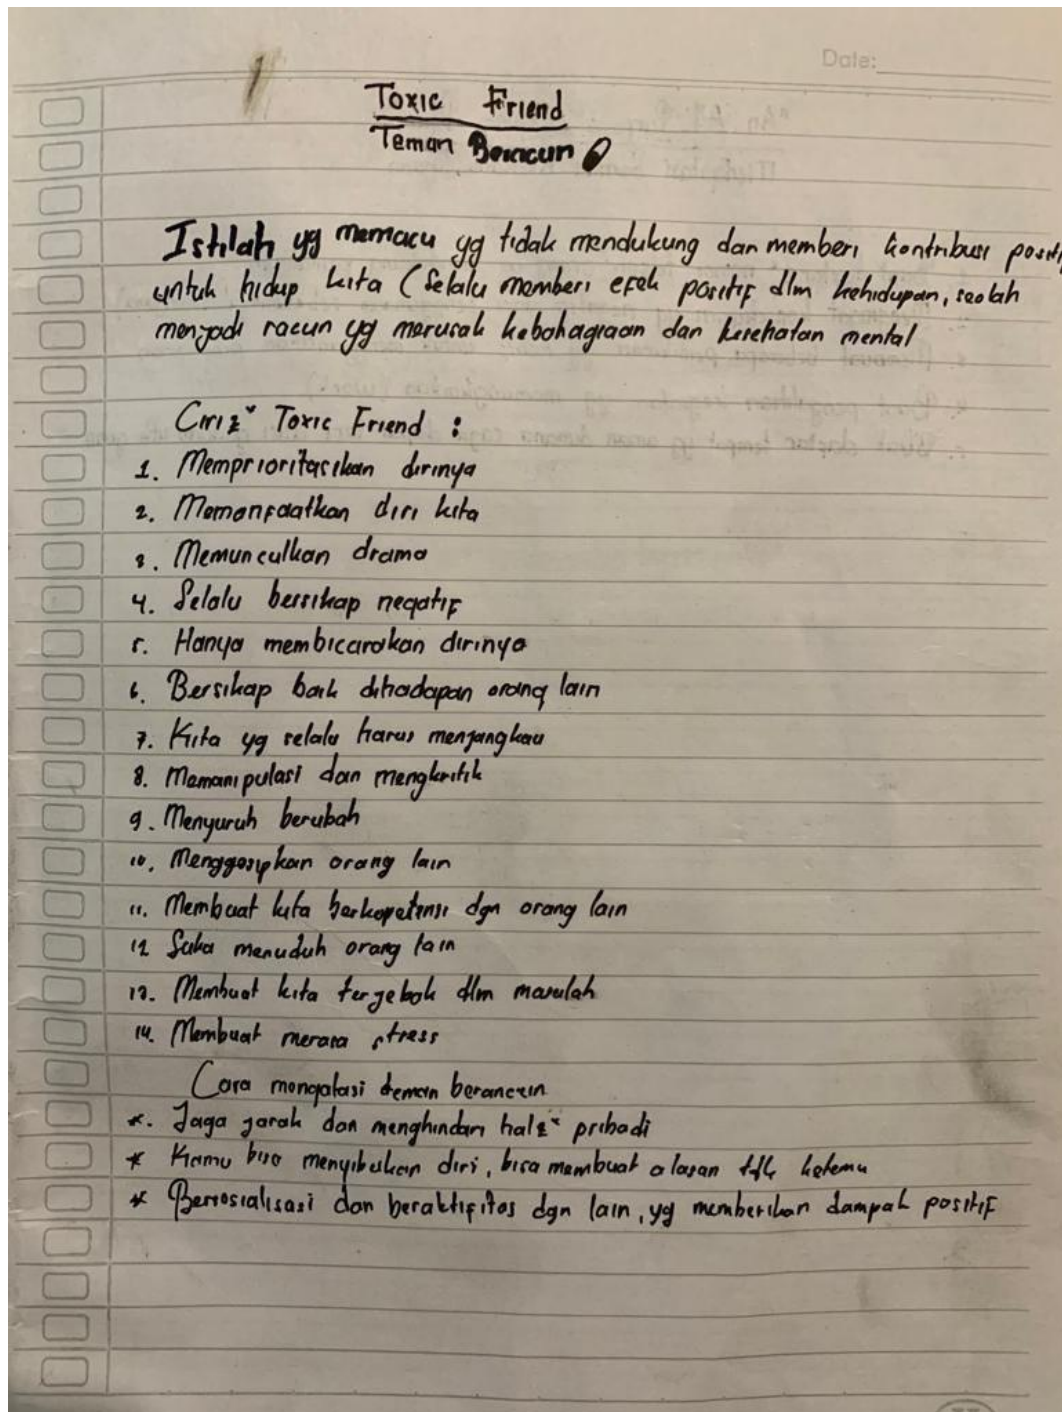 Date:
Toxic Friend
Teman Beracun
Istilah yg memacu yg tidak mendukung dan memberi kontribusi positif
untuk hidup kita (Selalu memberi efek positif dlm kehidupan, seolah
menjadi racun yg merusak kebahagiaan dan kesehatan mental
Ciri2" Toxic Friend :
1. Memprioritasikan dirinya
2. Memanfaatkan diri kita
3. Memunculkan drama
4. Selalu bersikap negatif
5. Hanya membicarakan dirinya
6. Bersikap baik dihadapan orang lain
7. Kita yg selalu harus menjangkau
8. Memanipulasi dan mengkritik
9. Menyuruh berubah
10. Menggosipkan orang lain
11. Membuat kita berkopetensi dgn orang lain
12 Suka menuduh orang lain
13. Membuat kita terjebak dlm masalah
14. Membuat merasa stress
Cara mengatasi teman
*. Jaga jarak dan menghindari hal2" pribadi
* Kamu bisa menyibukan diri, bisa membuat alasan ketemu
* Bersosialisasi dan beraktifitas dgn lain, yg memberikan dampak positif